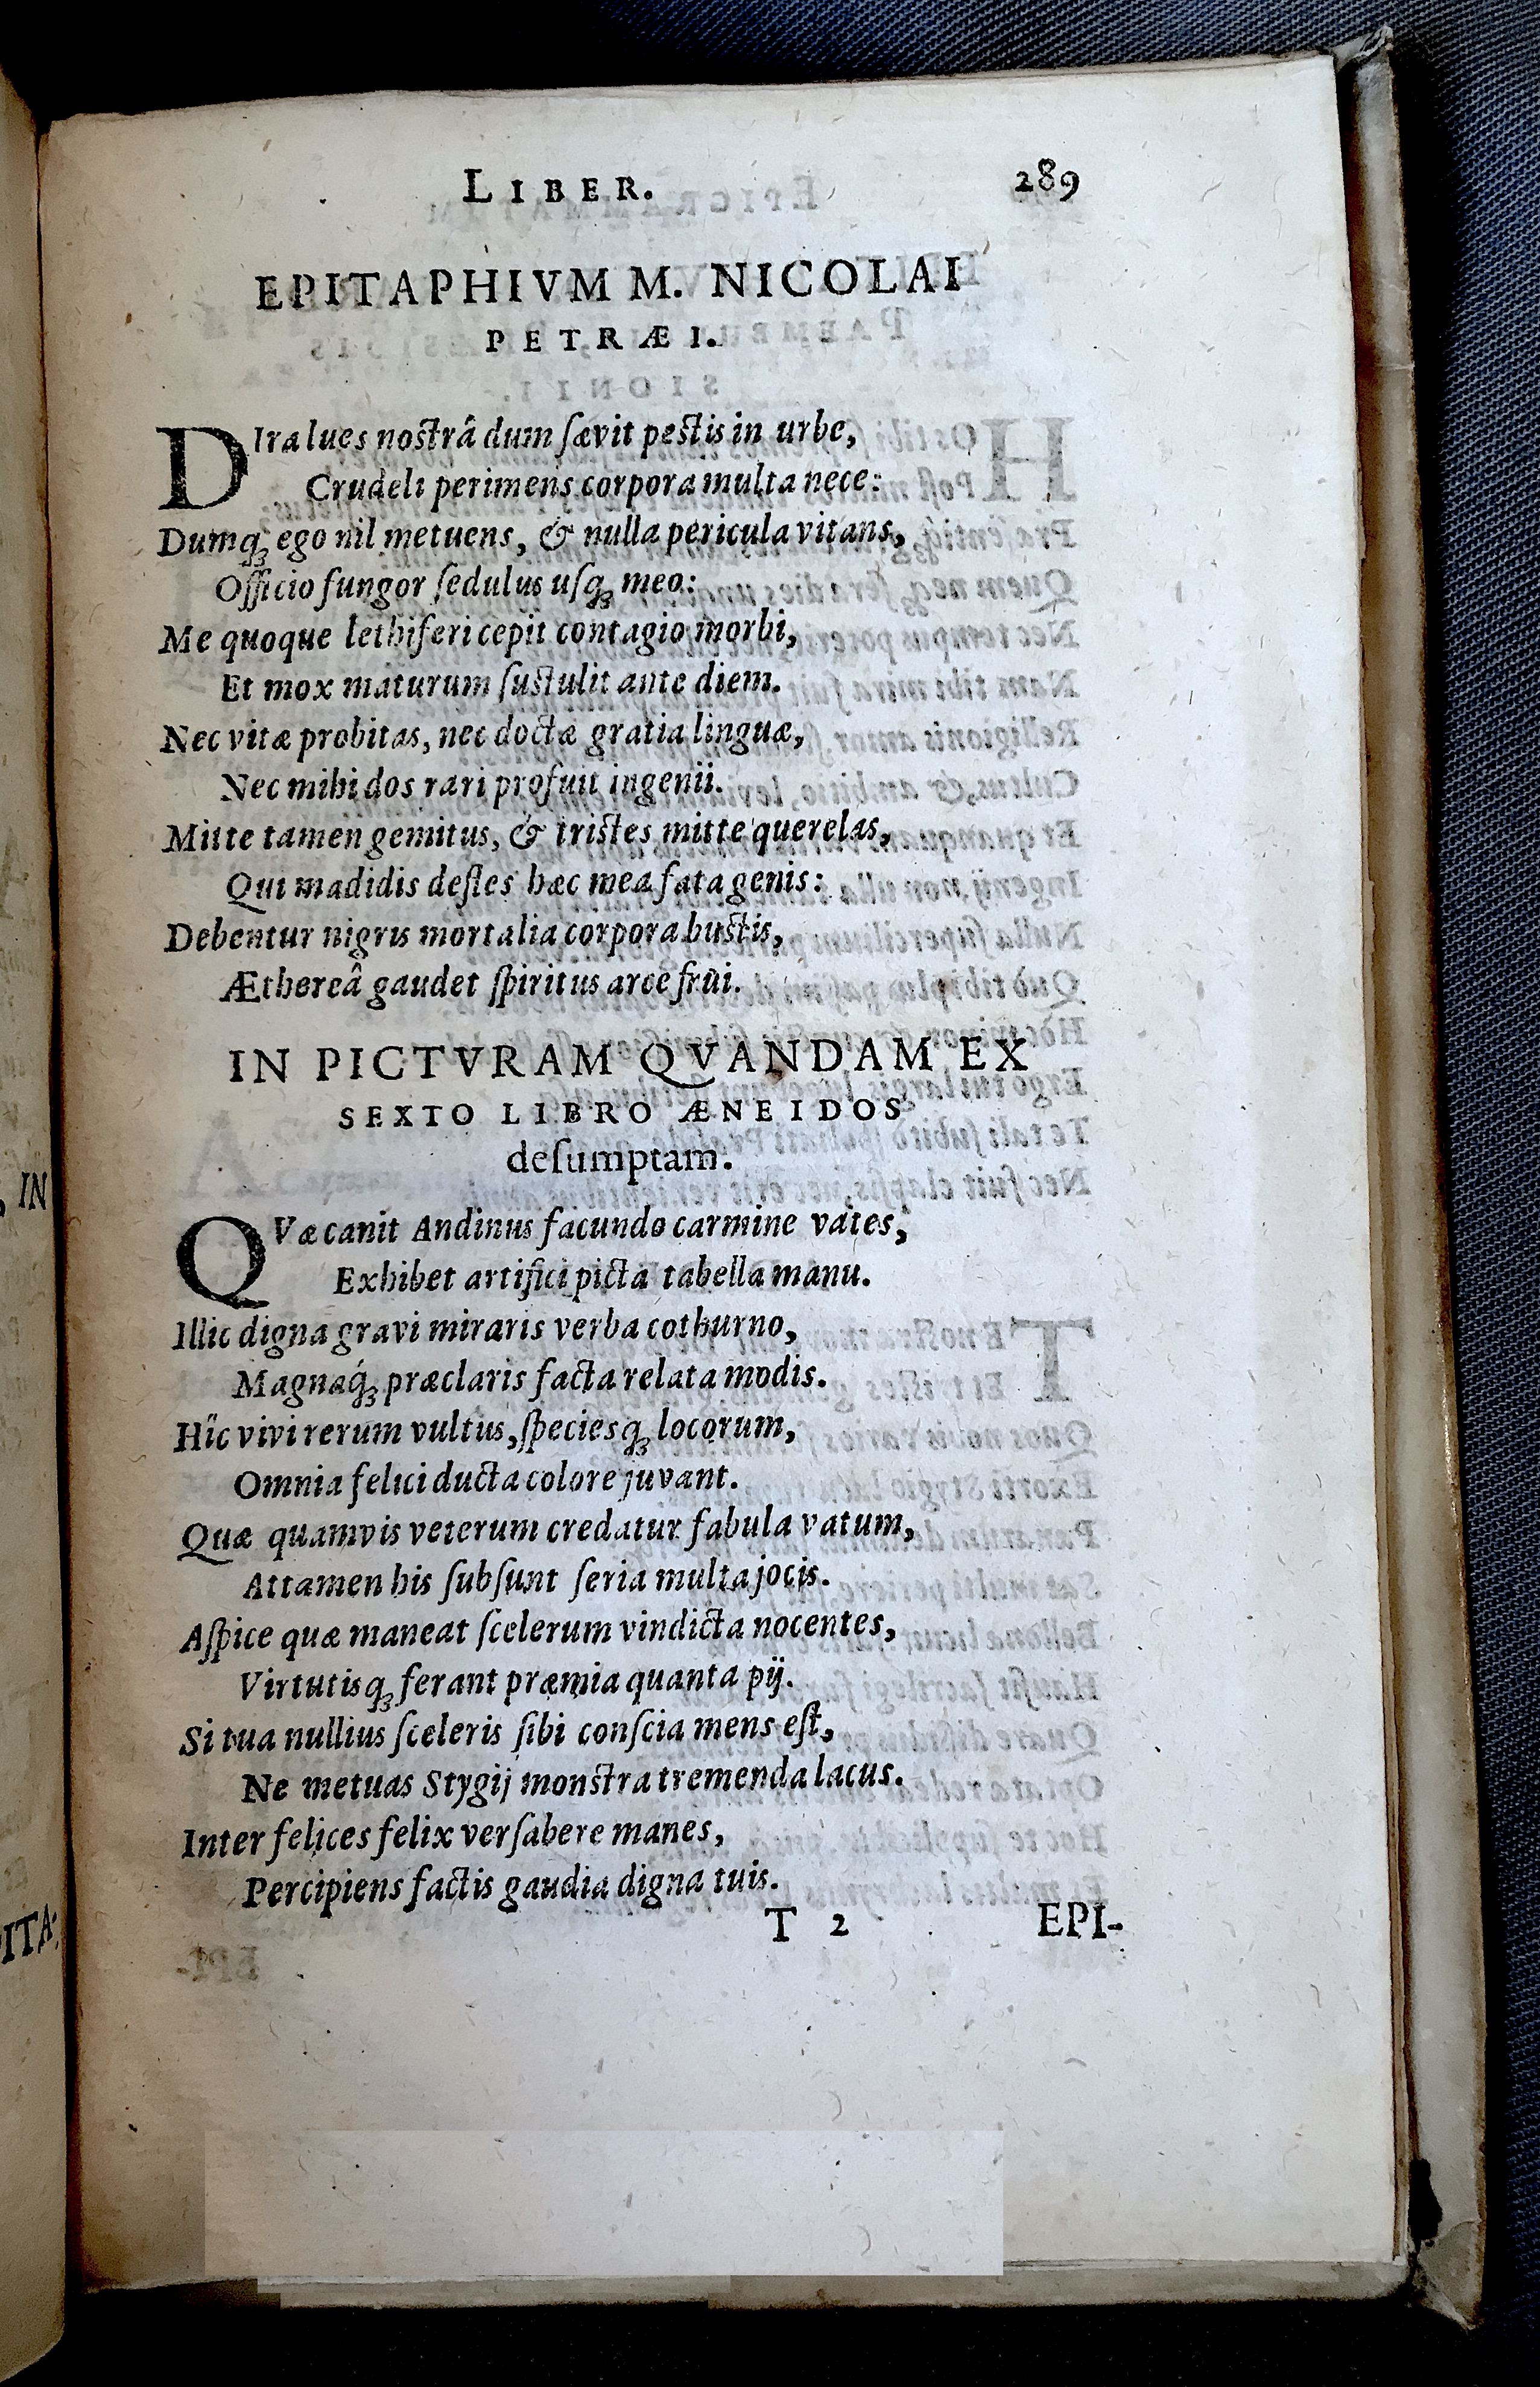 LIBER. 289
EPITAPHIVM M. NICOLAI
PETRÆI.
DIra lues nostrâ dum ſævit pestis in urbe,
Crudeli perimens corpora multa nece:
Dumqꝫ ego nil metuens, & nulla pericula vitans,
Officio fungor ſedulus uſqꝫ meo:
Me quoque lethiferi cepit contagio morbi,
Et mox maturum ſustulit ante diem.
Nec vitæ probitas, nec doctæ gratia linguæ,
Nec mihi dos rari profuit ingenii.
Mitte tamen gemitus, & tristes mitte querelas,
Qui madidis defles hæc mea fata genis:
Debentur nigris mortalia corpora bustis,
Æthereâ gaudet ſpiritus arce frui.
IN PICTVRAM QVANDAM EX
SEXTO LIBRO ÆNEIDOS
deſumptam.
QVæ canit Andinus facundo carmine vates,
Exhibet artifici picta tabella manu.
Illic digna gravi miraris verba cothurno,
Magnaq́ꝫ præclaris facta relata modis.
Hîc vivi rerum vultus, ſpeciesqꝫ locorum,
Omnia felici ducta colore juvant.
Quæ quamvis veterum credatur fabula vatum,
Attamen his ſubſunt ſeria multa jocis.
Aſpice quæ maneat ſcelerum vindicta nocentes,
Virtutisqꝫ ferant præmia quanta pij.
Si tua nullius ſceleris ſibi conſcia mens eſt,
Ne metuas Stygij monstra tremenda lacus.
Inter felices felix verſabere manes,
Percipiens factis gaudia digna tuis.
T 2 EPI-
IN
ITA: